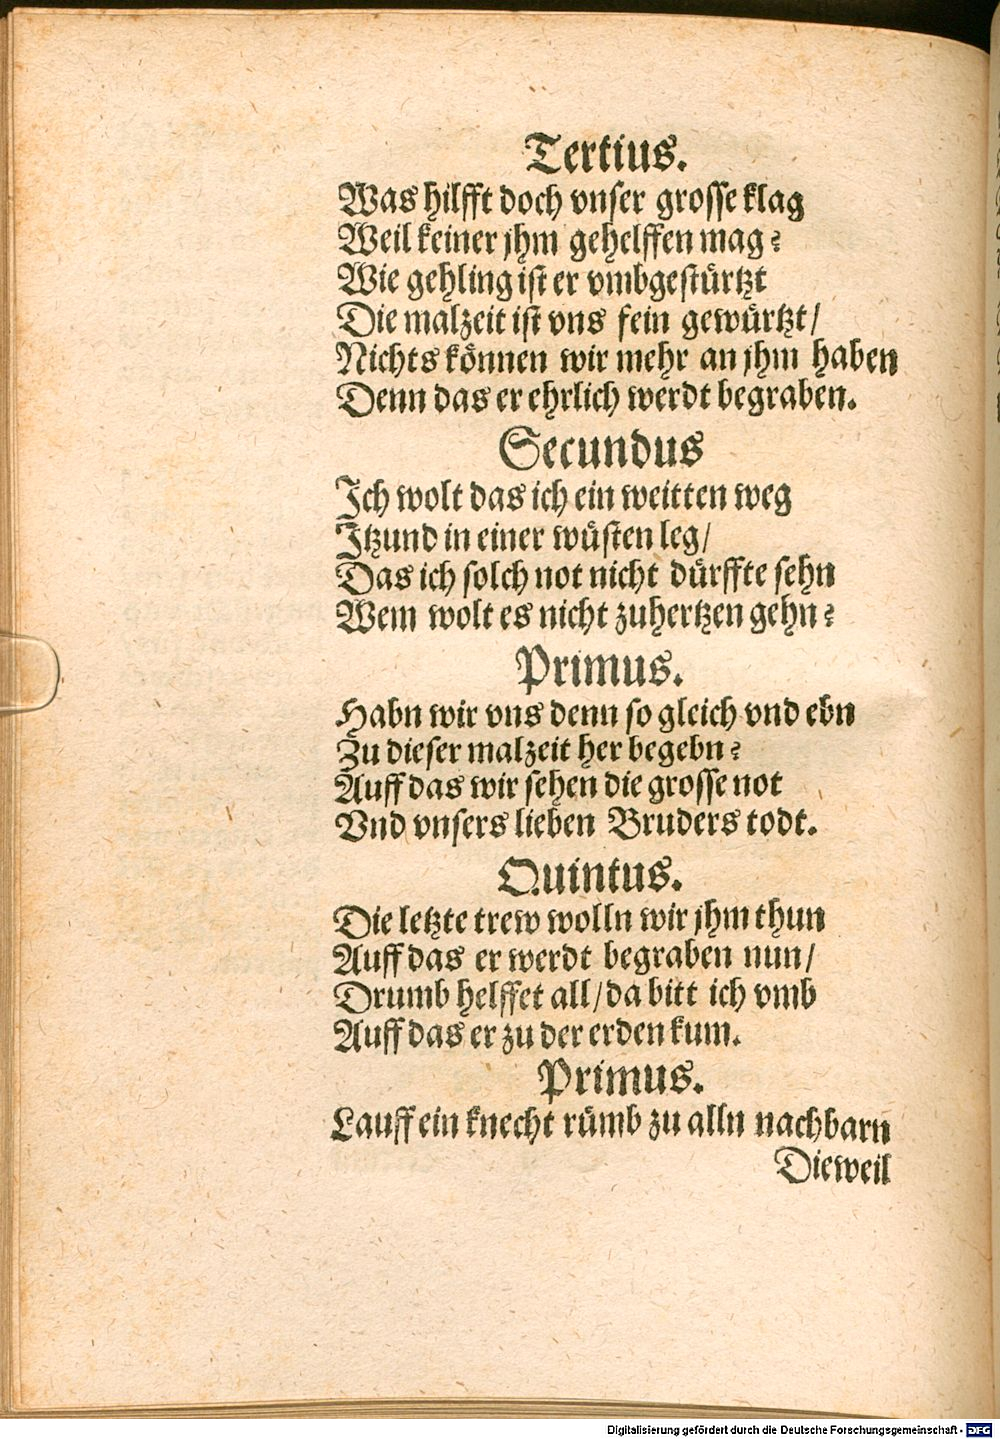 Tertius.
Was hilfft doch vnser grosse klag
Weil keiner jhm gehelffen mag?
Wie gehling ist er vmbgestürtzt
Die malzeit ist vns fein gewürtzt/
Nichts können wir mehr an jhm haben
Denn das er ehrlich werdt begraben.
Secundus
Ich wolt das ich ein weitten weg
Itzund in einer wüsten leg/
Das ich solch not nicht dürffte sehn
Wem wolt es nicht zuhertzen gehn?
Primus.
Habn wir vns denn so gleich vnd ebn
Zu dieser malzeit her begebn?
Auff das wir sehen die grosse not
Vnd vnsers lieben Bruders todt.
Quintus.
Die letzte trew wolln wir jhm thun
Auff das er werdt begraben nun/
Drumb helffet all/da bitt ich vmb
Auff das er zu der erden kum.
Primus.
Lauff ein knecht rümb zu alln nachbarn
Dieweil
Digitalisierung gefördert durch die Deutsche Forschungsgemeinschaft - DFG